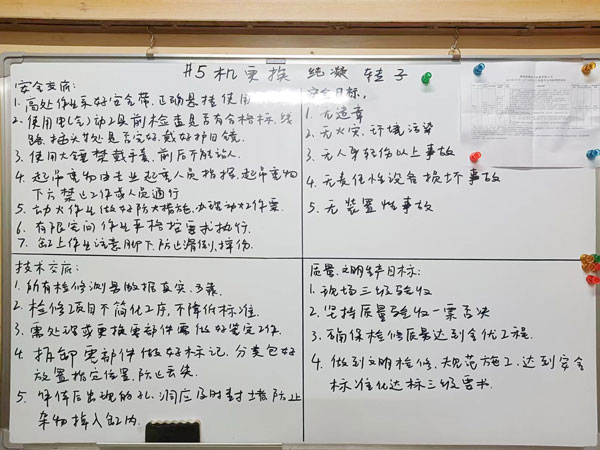 #5机更换 纯凝 转子
安全交底:
1. 高处作业系好安全带,正确悬挂使用
2. 使用电(气)动工具前检查是否有合格标,线
路、插头等处是否完好,戴好护目镜
3. 使用大锤禁戴手套,前后不能站人.
4. 起吊重物由专业起重人员指挥,起吊重物
下方禁止工作或人员通行
5. 动火作业做好防火措施,办理动火工作票.
6. 有限空间作业严格按要求执行.
7. 缸上作业注意脚下,防止滑倒,摔伤.
安全目标.
1. 无违章
2. 无火灾、环境污染
3. 无人身轻伤以上事故
4. 无责任性设备损坏事故
5. 无装置性事故
技术交底:
1. 所有检修测量数据真实、可靠.
2. 检修项目不简化工序,不降低标准.
3. 需处理或更换零部件需做好鉴定工作.
4. 拆卸零部件做好标记,分类包好
放置指定位置,防止丢失
5. 解体后出现的孔、洞应及时封堵防止
杂物掉入缸内.
质量、文明生产目标:
1. 现场三级验收
2. 坚持质量验收一票否决
3. 确保检修质量达到全优工程.
4. 做到文明检修,规范施工,达到安全
标准化达标三级要求.